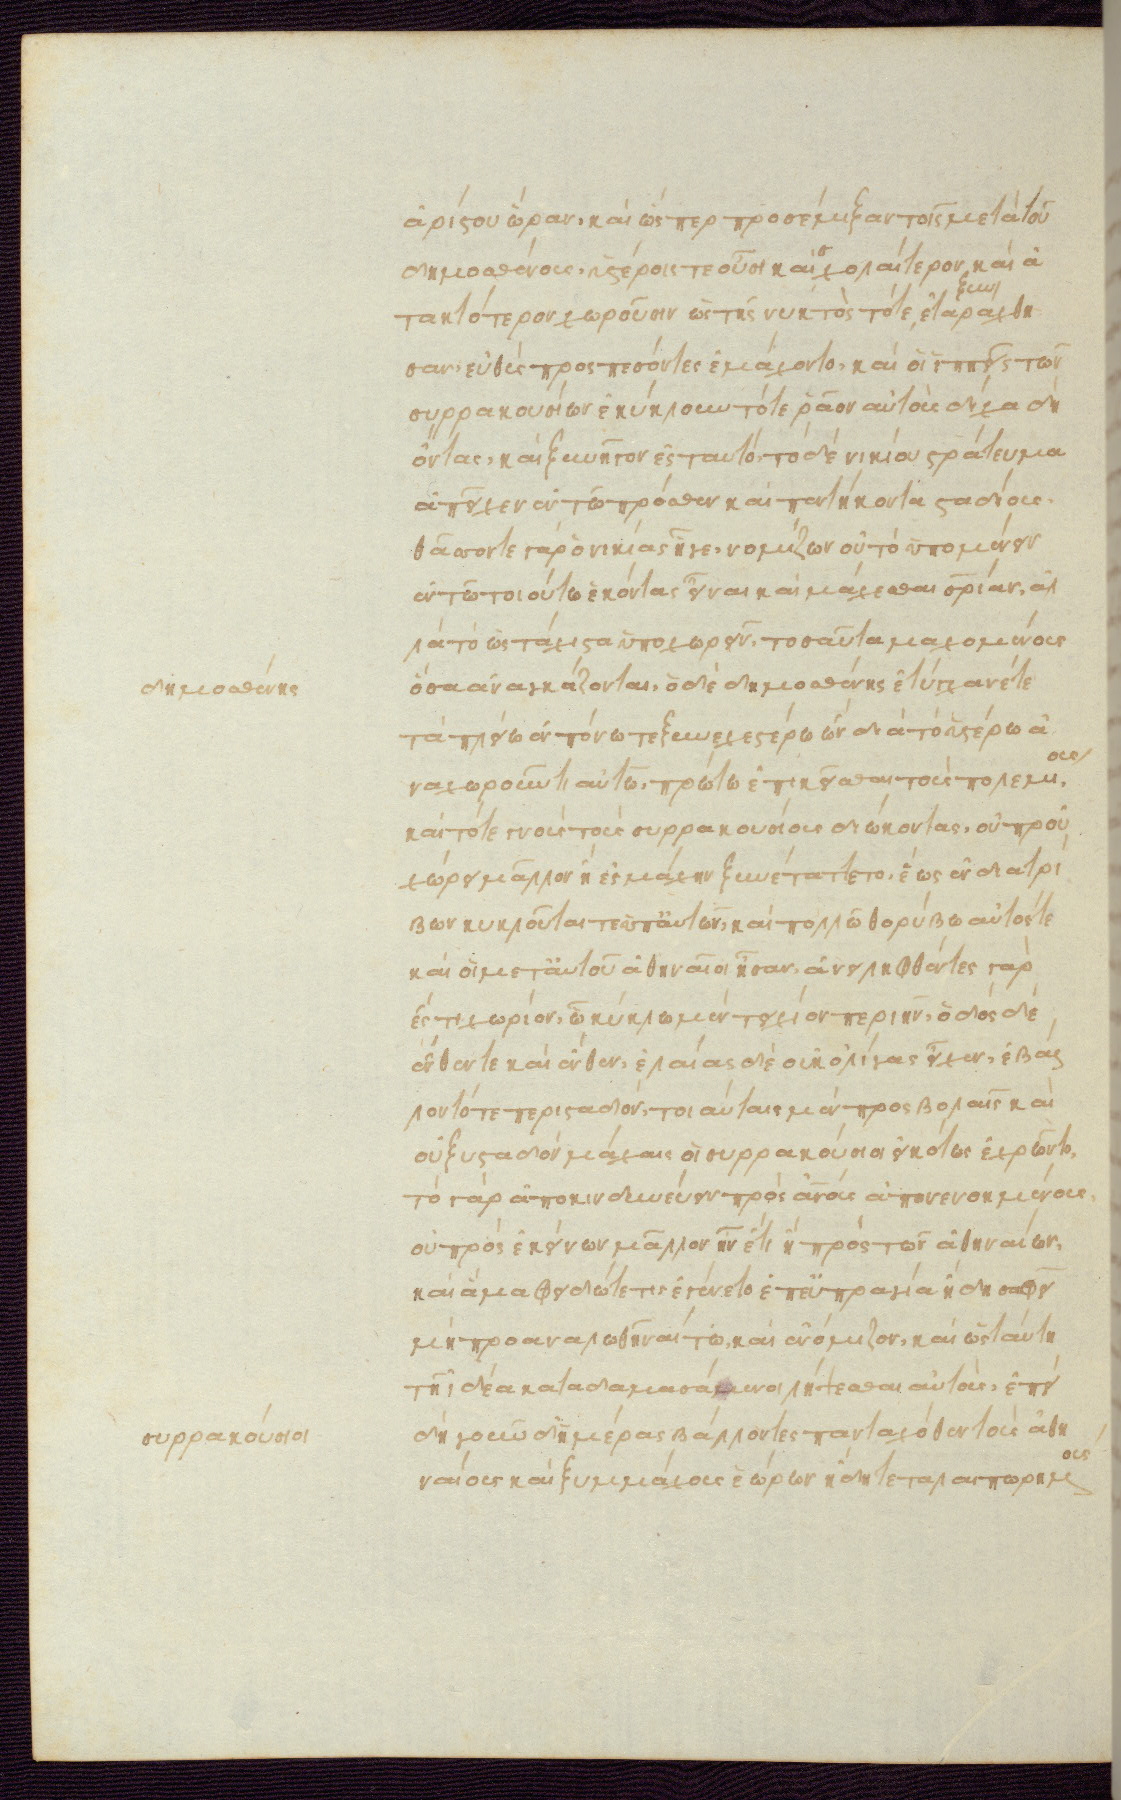 ἀρίστου ὥραν, καὶ ὥσπερ προσέμιξαν τοῖς μετὰ τοῦ
δημοσθένους, ὑστέροις τε οὖσι καὶ σχολαίτερον, καὶ ἀ
τακτότερον χωροῦσιν ὡς τῆς νυκτὸς τότε ξυνεταράχθη
σαν, εὐθὺς προσπεσόντες ἐμάχοντο, καὶ οἱ ἱππεῖς τῶν
συρρακουσίων ἐκυκλοῦντό τε ῥᾷον αὐτοὺς δίχα δὴ
ὄντας, καὶ ξυνῆγον ἐς ταυτό, τὸ δὲ νικίου στράτευμα
ἀπεῖχεν ἐν τῷ πρόσθεν καὶ πεντήκοντα σταδίους,
θᾶσσόν τε γὰρ ὁ νικίας ἦγε, νομίζων οὐ τὸ ὑπομένειν
ἐν τῷ τοιούτῳ ἑκόντας εἶναι καὶ μάχεσθαι σωτηρίαν, ἀλ
λὰ τὸ ὡς τάχιστα ὑποχωρεῖν, τοσαῦτα μαχομένους
ὅσα ἀναγκάζονται, ὁ δὲ δημοσθένης ἐτύγχανέ τε
τὰ πλείω ἐν πόνῳ τε ξυνεχεστέρῳ ὢν διὰ τὸ ὑστέρῳ ἀ
ναχωροῦντι αὐτῷ, πρώτῳ ἐπικεῖσθαι τοὺς πολεμίους,
καὶ τότε γνοὺς τοὺς συρρακουσίους διώκοντας, οὐ προὐ
χώρει μᾶλλον ἢ ἐς μάχην ξυνετάττετο, ἕως ἐνδιατρί
βων κυκλοῦταί τε ὑπ' αὐτῶν, καὶ πολλῷ θορύβῳ αὐτός τε
καὶ οἱ μετ' αὐτοῦ ἀθηναῖοι ἦσαν, ἀνειληθέντες γὰρ
ἔς τι χωρίον, ᾧ κύκλῳ μὲν τειχίον περιῆν, ὁδὸς δὲ
ἔνθεν τε καὶ ἔνθεν, ἐλαίας δὲ οὐκ ὀλίγας εἶχεν, ἐβάλ
λοντό τε περισταδόν, τοιαύταις μὲν προσβολαῖς καὶ
οὐ ξυσταδὸν μάχαις οἱ συρρακούσιοι εἰκότως ἐχρῶντο,
τὸ γὰρ ἀποκινδυνεύειν πρὸς ἀνοὺς ἀπονενοημένους,
οὐ πρὸς ἐκείνων μᾶλλον ἦν ἔτι ἢ πρὸς τῶν ἀθηναίων,
καὶ ἅμα φειδώ τέ τις ἐγένετο ἐπ' εὐπραγίᾳ ἤδη σαφεῖ
μὴ προαναλωθῆναί τῳ, καὶ ἐνόμιζον, καὶ ὣς ταύτῃ
τῇ ἰδέᾳ καταδαμασάμενοι λήψεσθαι αὐτούς, ἐπει
δὴ γοῦν δι' ἡμέρας βάλλοντες πανταχόθεν τοὺς ἀθη
ναίους καὶ ξυμμάχους ἑώρων ἤδη τεταλαιπωρημένους
δημοσθένης
συρρακούσιοι